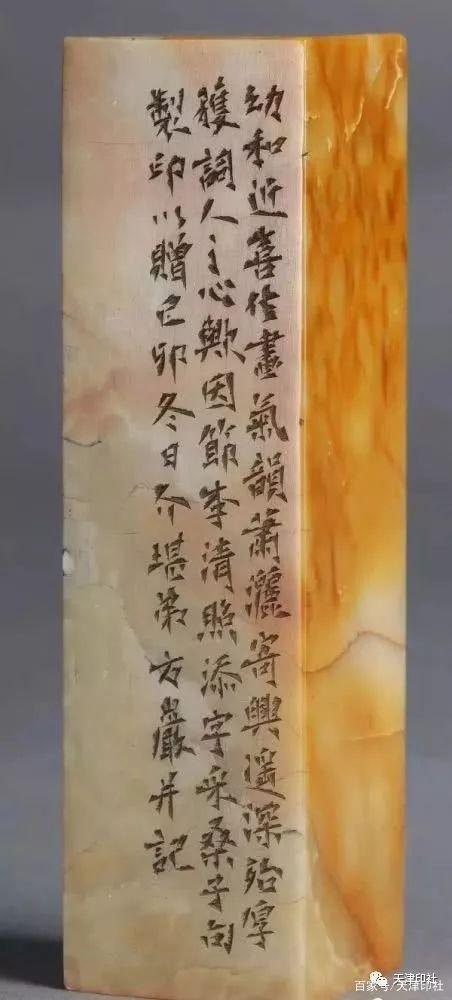 幼和近喜作畫氣韻蕭灑寄興遥深殆
穫詞人之心歟因節李清照添字采桑子句
製印以贈己卯冬日介堪弟方巖并記
天津印社
百家号/天津印社